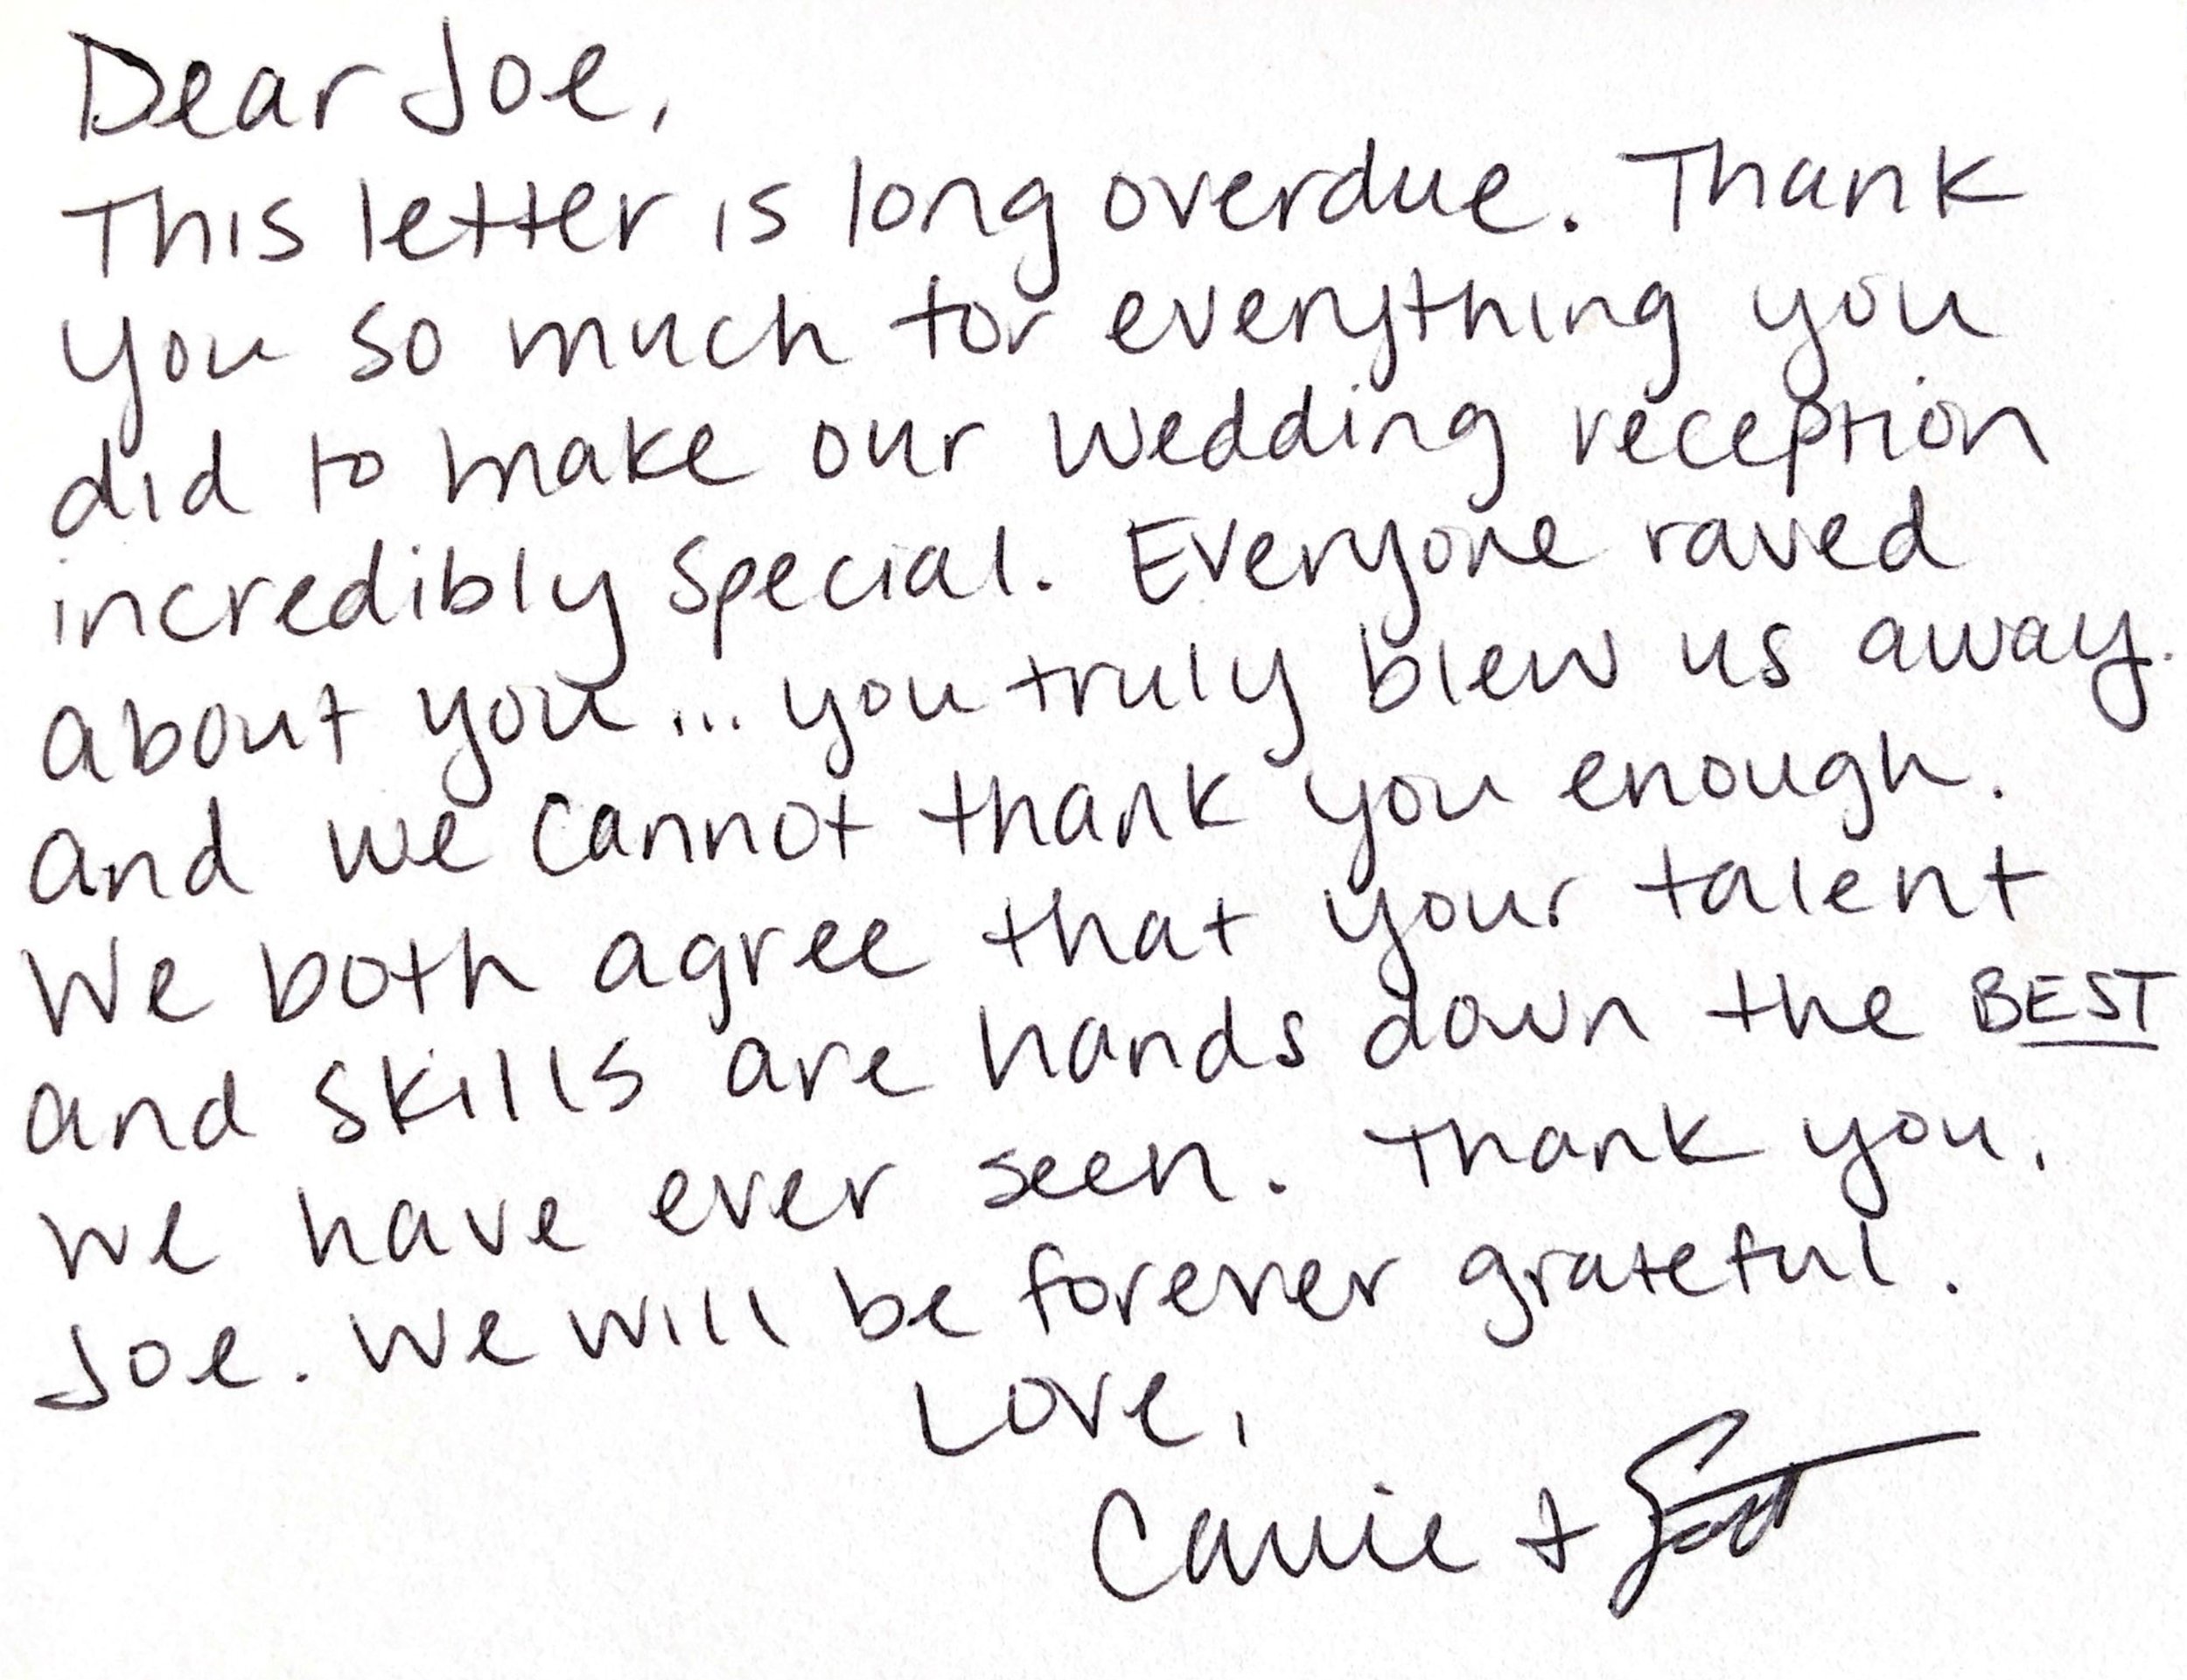 Dear Joe,
This letter is long overdue. Thank
you so much for everything you
did to make our wedding reception
incredibly special. Everyone raved
about you... you truly blew us away.
and we cannot thank you enough.
We both agree that your talent
and skills are hands down the BEST
we have ever seen. Thank you,
Joe. We will be forever grateful.
Love,
Carrie + Scott